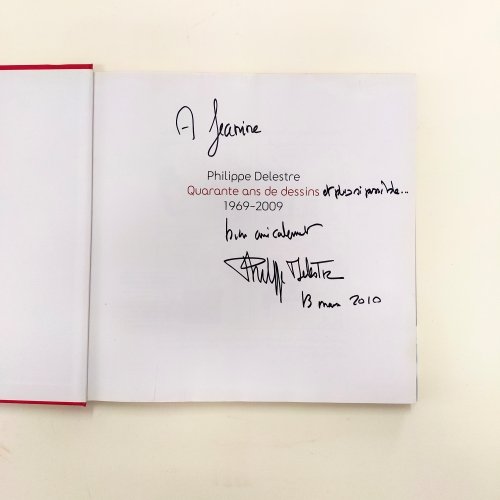 A Jeanine
Philippe Delestre
Quarante ans de dessins et plus si possible...
1969-2009
bien amicalement
Philippe Delestre
13 mars 2010